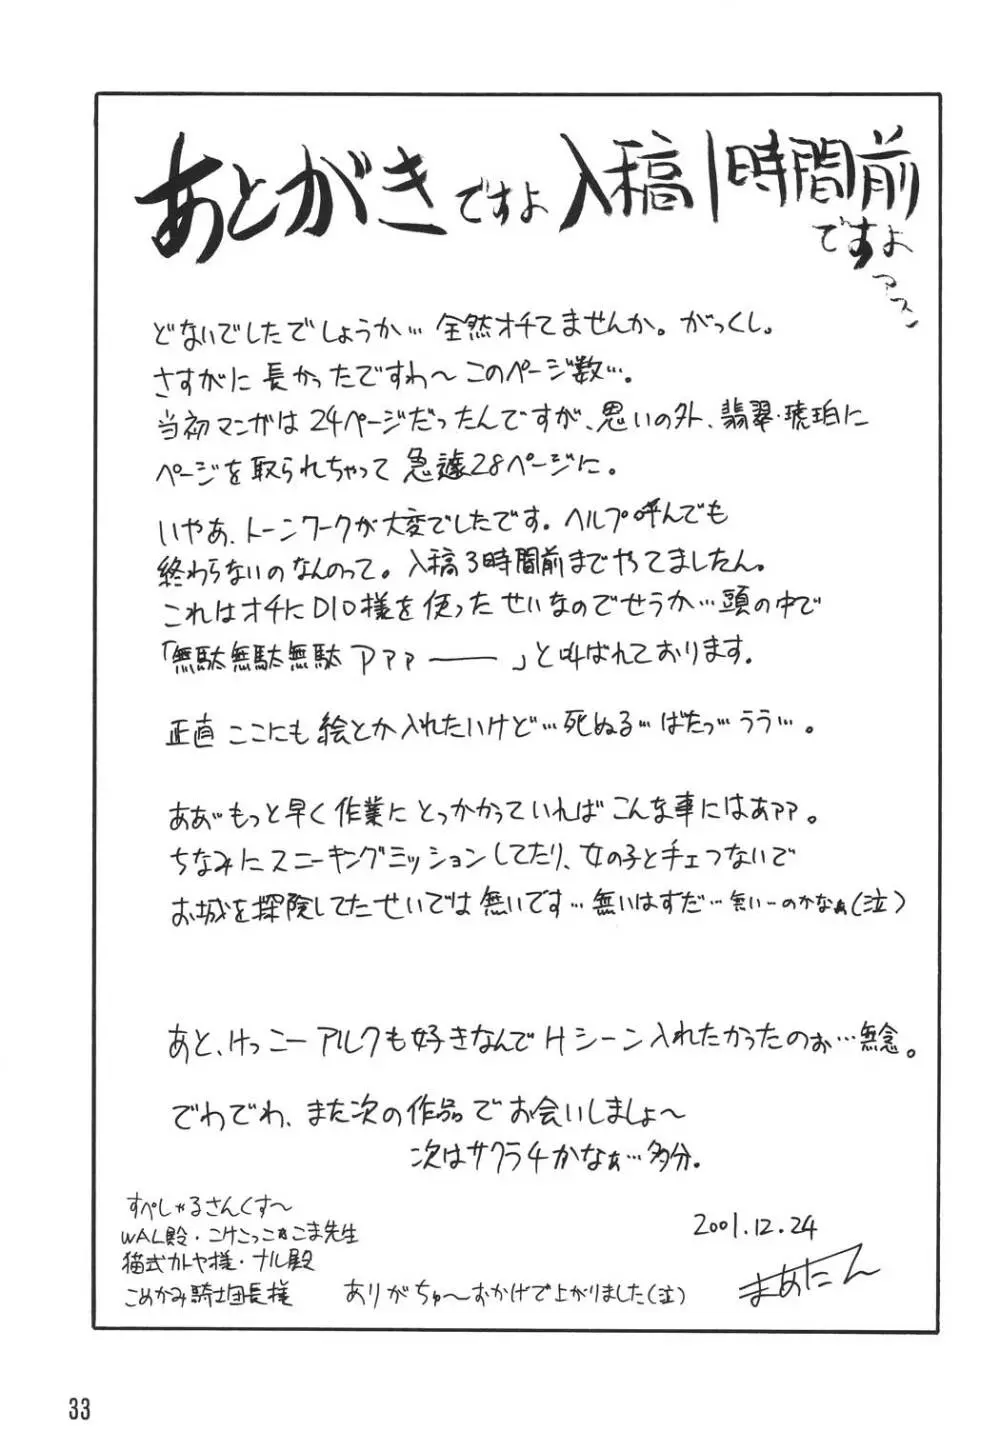 あとがきですよ 入稿1時間前
ですよ
アスン
どないでしたでしょうか… 全然オチてませんか。がっくし。
さすがに 長かったですわ～ このページ数…。
当初マンガは24ページだったんですが、思いの外、翡翠・琥珀に
ページを取られちゃって 急遽28ページに。
いやあ、トーンワークが大変でしたです。ヘルプ呼んでも
終わらないのなんのって。入稿3時間前までやってましたん。
これはオチにDIO様を使ったせいなのでせうか…頭の中で
「無駄無駄無駄アァァ――」と叫ばれております。
正直 ここにも絵とか入れたいけど…死ぬる… ばたっ… うう…。
ああ… もっと早く作業に とっかかっていれば こんな事にはあァァ。
ちなみにスニーキングミッションしてたり、女の子とチェつないで
お城を探険してたせいでは 無いです… 無いはずだ… 無いーのかなぁ(泣)
あと、けっこーアルクも好きなんで Hシーン入れたかったのぉ…無念。
でわでわ、また次の作品でお会いしましょ～
次はサクラ4かなぁ…多分。
すぺしゃるさんくす～
WAL殿・こけこっこ☆こま先生
猫式カトヤ様・ナル殿
こめかみ騎士団長様 ありがちゅ～おかげで上がりました(泣)
2001.12.24
まあたん
33